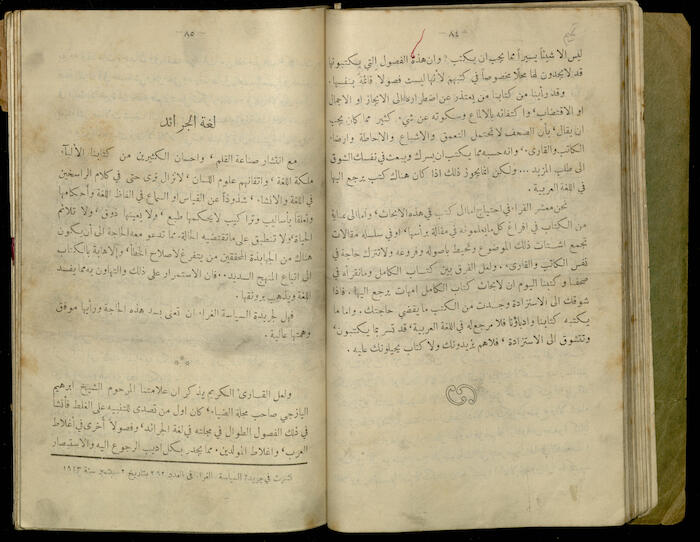 — ٨٤ —
ليس الا شيئاً يسيراً مما يجب ان يكتب ؛ وان هذه الفصول التي يكتبونها
قد لا يجدون لها محلاً مخصوصاً في كتبهم لأنها ليست فصولا قائمة بنفسها.
وقد رأينا من كتابنا من يعتذر عن اضطراره الى الايجاز او الاجمال
او الاقتضاب، واكتفائه بالالماع وسكوته عن شيء كثير مما كان يجب
ان يقال، بأن الصحف لا تحتمل التعمق والاشباع والاحاطة وارضاء
الكاتب والقارىء، وانه حسبه مما يكتب ان يسرك ويبعث في نفسك الشوق
الى طلب المزيد ... ولكن انما يجوز ذلك اذا كان هناك كتب يرجع اليها
في اللغة العربية.
نحن معشر القراء في احتياج الى كتب في هذه الابحاث، والى عناية
من الكتاب في افراغ كل ما يعلمونه في مقالة برأسها، او في سلسلة مقالات
تجمع اشتات ذلك الموضوع وتحيط باصوله وفروعه ولا تترك حاجة في
نفس الكاتب والقارىء، ولعل الفرق بين كتاب الكامل وما نقرأه في
صحفنا وكتبنا اليوم ان لابحاث كتاب الكامل امهات يرجع اليها. فاذا
شوقك الى الاستزادة وجدت من الكتب ما يقضي حاجتك. واما ما
يكتبه كتابنا وادباؤنا فلا مرجع له في اللغة العربية، قد تسر بما يكتبون،
وتتشوق الى الاستزادة، فلا هم يزيدونك ولا كتاب يحيلونك عليه.
— ٨٥ —
لغة الجرائد
مع انتشار صناعة القلم، واحسان الكثيرين من كتابنا الأدباء
ملكة اللغة، واتقانهم علوم اللسان، لا نزال نرى حتى في كلام الراسخين
في اللغة والانشاء، شذوذاً عن القياس او السماع في الفاظ اللغة وأحكامها
وتعلقاً بأساليب وتراكيب لا يحكمها طبع، ولا يعينها ذوق، ولا تلائم
الحياة، ولا تنطبق على ما تقتضيه الحالة، مما تدعو معه الحاجة الى أن يكون
هناك من الجهابذة المحققين من يتفرغ لاصلاح الخطأ، والاهابة بالكتاب
الى اتباع المنهج السديد.. فان الاستمرار على ذلك والتهاون به مما يفسد
اللغة ويذهب برونقها.
فهل لجريدة السياسة الغراء ان تعنى بسد هذه الحاجة ورأيها موفق
وهمتها عالية.
ولعل القارىء الكريم يذكر ان علامتنا المرحوم الشيخ ابرهيم
اليازجي صاحب مجلة الضياء، كان اول من تصدى للتنبيه على الغلط فأنشأ
في ذلك الفصول الطوال في مجلته في لغة الجرائد، وفصولاً أخرى في أغلاط
العرب، واغلاط المولدين، مما يجدر بكل اديب الرجوع اليه والاستبصار
نشرت في جريدة السياسة الغراء في العدد ٢٦٢ بتاريخ ٢ سبتمبر سنة ١٩٢٣